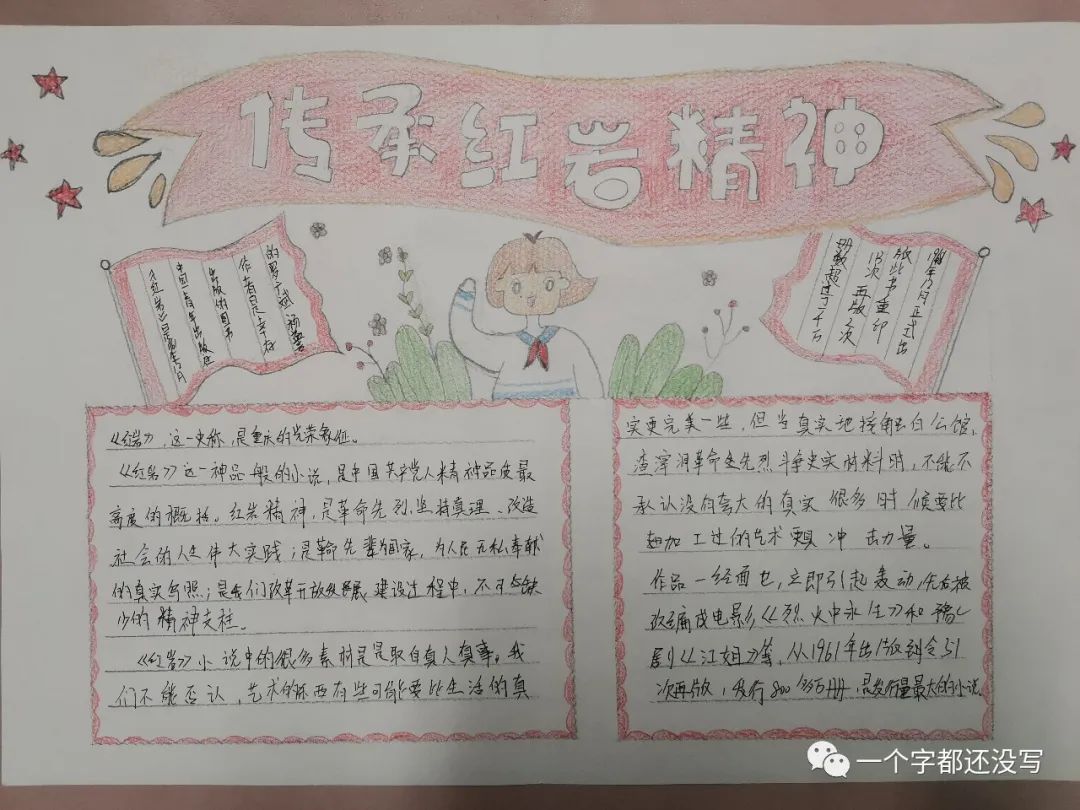 传承红岩精神
的罗广斌 杨益言
作者是幸存
出版的图书
中国青年出版社
《红岩》是 年 月
年12月正式出
版此书重印
次 再版 次
册数超过了千万
《红岩》,这一史称,是重庆的光荣象征。
《红岩》这一神品般的小说,是中国共产党人精神品质最
高度的概括。红岩精神,是革命先烈坚持真理、改造
社会的人生伟大实践;是革命先辈为国家,为人民无私奉献
的真实写照;是我们改革开放及发展建设过程中,不可或缺
少的精神支柱。
《红岩》小说中的很多素材是是取自真人真事。我
们不能否认,艺术的东西有些可能要比生活的真
实更完美一些,但当真实地接触白公馆、
渣滓洞革命史先烈斗争史实材料时,不能不
承认没有夸大的真实很多时候要比
加工过的艺术更具冲击力量。
作品一经面世,立即引起轰动,先后被
改编成电影《烈火中永生》和豫
剧《江姐》等,从1961年出版到今51
次再版,发行800多万册,是发行量最大的小说。
一个字都还没写